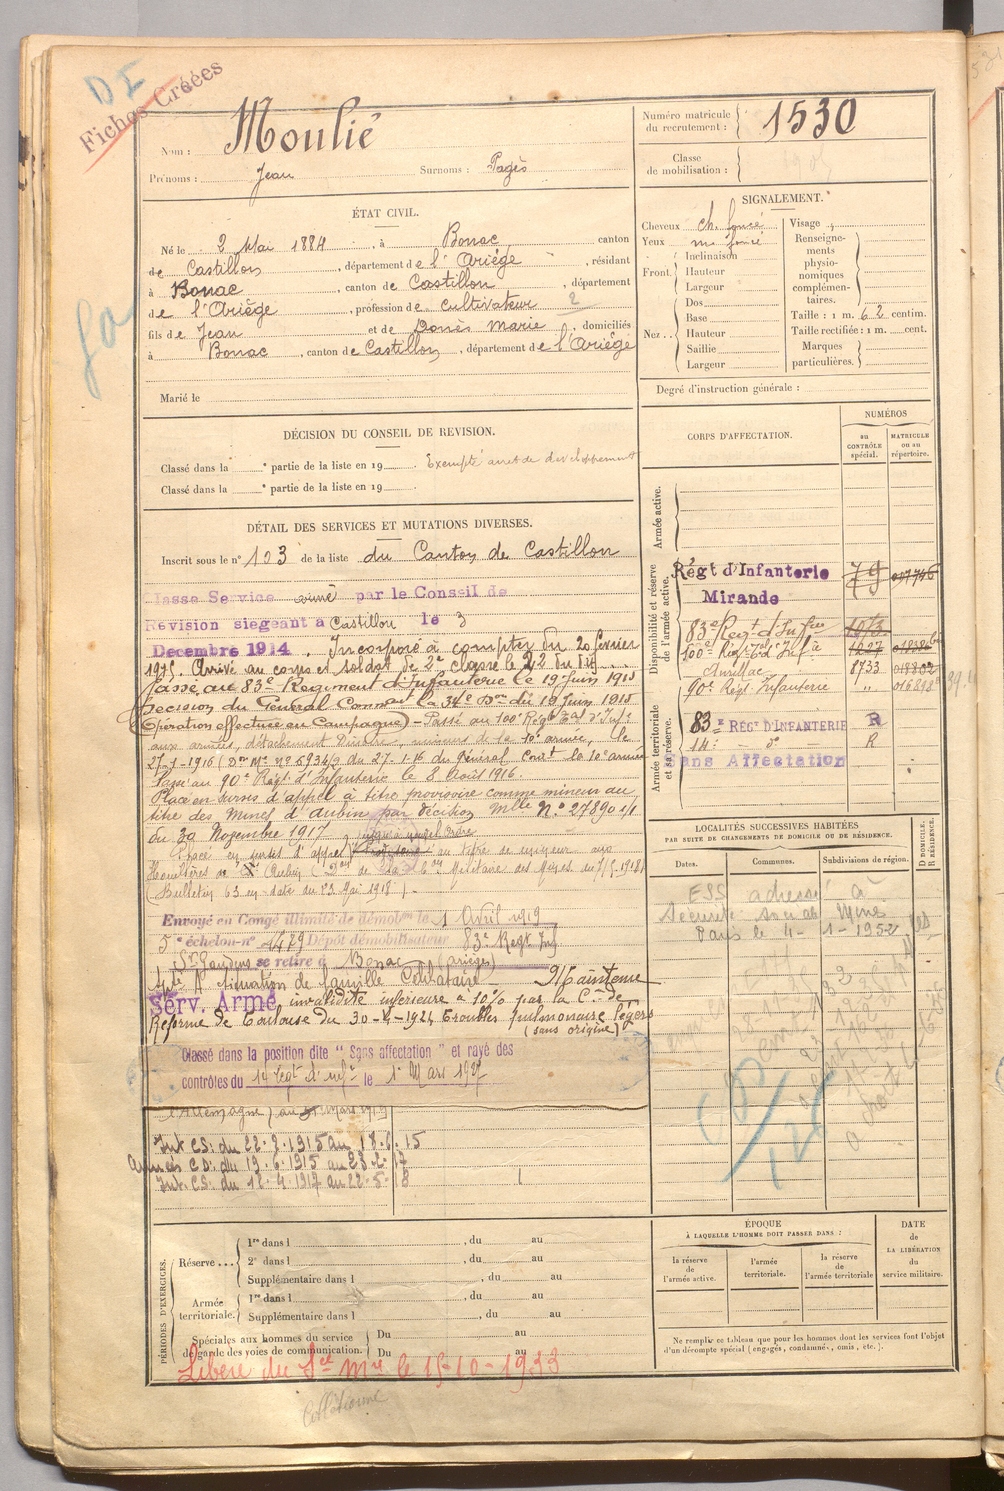 DI
Fiches Créées
Nom : Moulié
Prénoms : Jean Surnoms : Pagès
Numéro matricule du recrutement : 1530
Classe de mobilisation :
ÉTAT CIVIL.
Né le 2 Mai 1884, à Bonac, canton
de Castillon, département de l'Ariège, résidant
à Bonac, canton de Castillon, département
de l'Ariège, profession de cultivateur 2
fils de Jean et de Marie, domiciliés
à Bonac, canton de Castillon, département de l'Ariège
Marié le
SIGNALEMENT.
Cheveux ch. foncé
Yeux foncé
Front. Inclinaison
Hauteur
Largeur
Nez .. Dos
Base
Hauteur
Saillie
Largeur
Visage
Renseignements physionomiques complémentaires.
Taille : 1 m. 62 centim.
Taille rectifiée : 1 m. cent.
Marques particulières.
Degré d'instruction générale :
DÉCISION DU CONSEIL DE REVISION.
Classé dans la e partie de la liste en 19 . Exempté arret de developpement
Classé dans la e partie de la liste en 19 .
DÉTAIL DES SERVICES ET MUTATIONS DIVERSES.
Inscrit sous le n° 123 de la liste du Canton de Castillon
Classe Service armé par le Conseil de
Révision siegeant a Castillon le 3
Decembre 1914. Incorporé à compter du 20 février
1915. Arrivé au corps et soldat de 2e classe le 22 du dit
Passé au 83e Regiment d'Infanterie le 19 juin 1915
Decision du Général Comm. la 34e Don du 19 juin 1915
(Opération effectuée en Campagne) - Passé au 100e Régt d'Infie
aux armées, détachement mineurs de la 10e armée, le
27-1-1916 ( n° 5934/3 du 27-1-16 du Général Comt la 10e armée
Passé au 90e Régt d'Infanterie le 8 Août 1916.
Placé en sursis d'appel à titre provisoire comme mineur au
titre des Mines d'Aubin par décision Mlle N° 27890 1/1
du 30 Novembre 1917
Placé en sursis d'appel au titre de mineur aux
Houillères de Aubin
(Bulletin 63 en date du 23 Mai 1918).
Envoyé en Congé illimité de démobon le 1 Avril 1919
5e échelon n° 1479 Dépôt démobilisateur 83e Regt Inf
St Gaudens se retire à Bonac (Ariège)
situation de famille Célibataire - Maintenu
Serv. Armé invalidité inférieure à 10% par la C. de
Réforme de Toulouse du 30-4-1924 Troubles pulmonaires légers
(sans origine)
Classé dans la position dite " Sans affectation " et rayé des
contrôles du 14 Regt d'Infie le 1er Mars 1927
l'Allemagne) au Mars 1919
Int CS. du 22.2.1915 au 18.6.15
Armées CD. du 19.6.1915 au 28.2.17
Int. CS. du 12.4.1917 au 22.5.18
CORPS D'AFFECTATION.
NUMÉROS
au CONTRÔLE spécial.
MATRICULE ou au répertoire.
Armée active.
Disponibilité et réserve de l'armée active.
Régt d'Infanterie 79
Mirande
83e Regt d'Infrie 1073
100e Régt d'Infie 1227
Aurillac 8733
90e Régt. Infanterie "
Armée territoriale et sa réserve.
83e REGt D'INFANTERIE R
14e - do - R
Sans Affectation
LOCALITÉS SUCCESSIVES HABITÉES
PAR SUITE DE CHANGEMENTS DE DOMICILE OU DE RÉSIDENCE.
Dates. Communes. Subdivisions de région. D DOMICILE. R RÉSIDENCE.
ESS adressé à
Sécurité Sociale Mines
Paris le 4-1-1952
PÉRIODES D'EXERCICES.
Réserve ... 1re dans l , du au
2e dans l , du au
Supplémentaire dans l , du au
Armée territoriale. 1re dans l , du au
Supplémentaire dans l , du au
Spéciales aux hommes du service de garde des voies de communication. Du au
Du au
ÉPOQUE
À LAQUELLE L'HOMME DOIT PASSER DANS :
la réserve de l'armée active.
l'armée territoriale.
la réserve de l'armée territoriale
DATE de LA LIBÉRATION du service militaire.
Ne remplir ce tableau que pour les hommes dont les services font l'objet
d'un décompte spécial (engagés, condamnés, omis, etc.).
Libéré du Sce Mre le 15-10-1933
Collationné